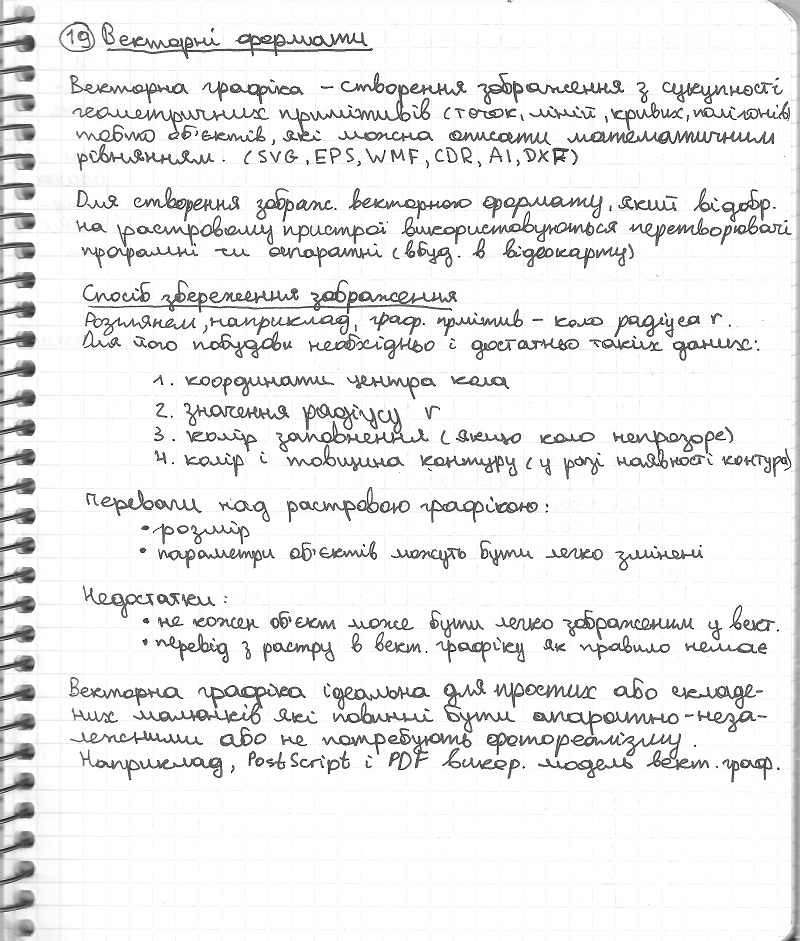 19 Векторні формати
Векторна графіка – створення зображення з сукупності
геометричних примітивів (точок, ліній, кривих, полігонів)
тобто об'єктів, які можна описати математичним
рівнянням. (SVG, EPS, WMF, CDR, AI, DXF)
Для створення зображ. векторного формату, який відобр.
на растровому пристрої використовуються перетворювачі
програмні чи апаратні (вбуд. в відеокарту)
Спосіб збереження зображення
Розглянем, наприклад, граф. прмітив – коло радіуса r.
Для його побудови необхідньо і достатньо таких даних:
1. координати центра кола
2. значення радіусу r
3. колір заповнення (якщо коло непрозоре)
4. колір і товщина контуру (у разі наявності контура)
Переваги над растровою графікою:
• розмір
• параметри об'єктів можуть бути легко змінені
Недостатки:
• не кожен об'єкт може бути легко зображеним у вект.
• перевід з растру в вект. графіку як правило немає
Векторна графіка ідеальна для простих або складе-
них малюнків які повинні бути апаратно-неза-
лежними або не потребують фотореалізму.
Наприклад, PostScript і PDF викор. модель вект. граф.